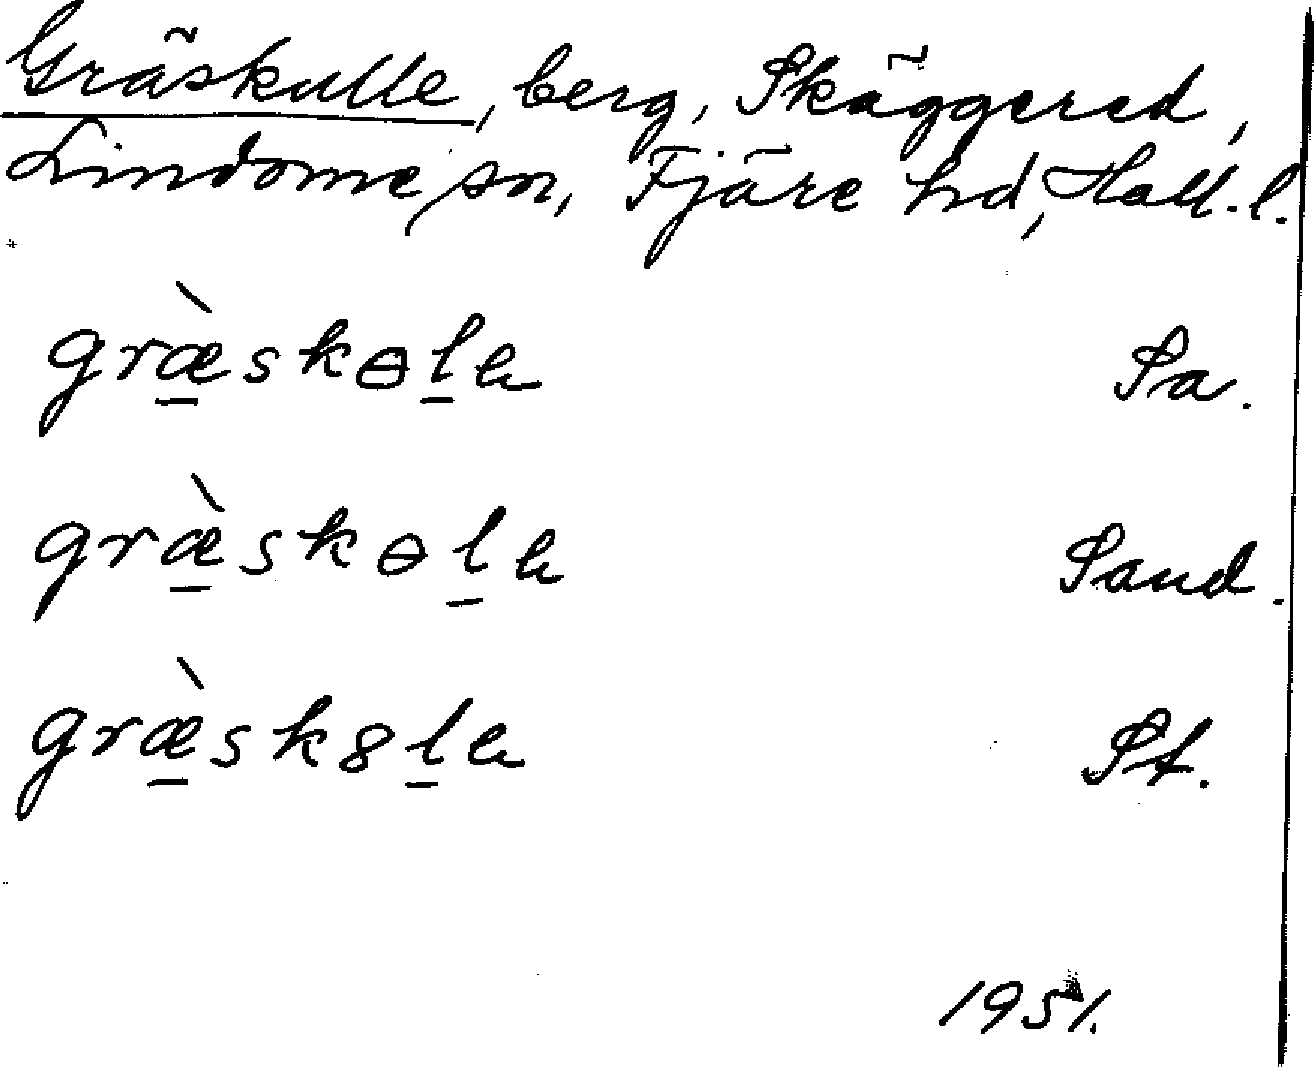 Gräskulle, berg, Skäggered,
Lindome sn, Fjäre hd, Hall. l.
græ̠̀skɵl̠ɐ Sa.
græ̠̀skɵl̠ɐ Sand.
græ̠̀sk8l̠ɐ St.
1951.